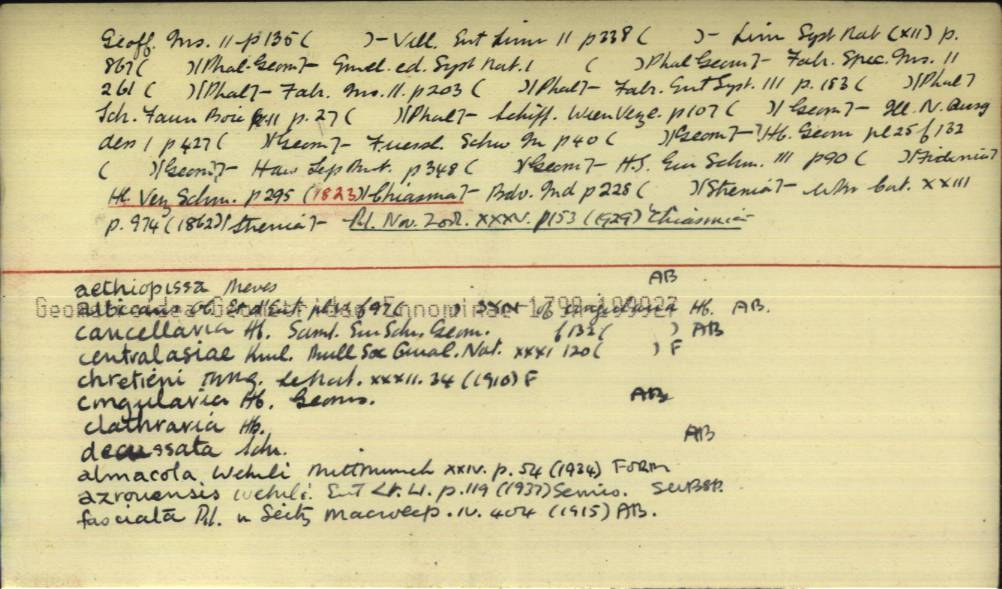 Geoff. Ins. II p 135 (      )- Vill. Ent Linn II p 338 (      )- Linn Syst Nat (XII) p.
867 (      )[Phal-Geom]- Gmel. ed. Syst Nat. I      (      )Phal Geom]- Fabr. Spec. Ins. II
261 (      )[Phal]- Fabr. Ins. II. p 203 (      )[Phal]- Fabr. Ent Syst. III p. 153 (      )[Phal]
Sch. Faun Boic II p. 27 (      )[Phal]- Schiff. Wien Verz. p 107 (      )[Geom]- N.
den I p 427 (      )[Geom]- Fuessl. Schw In p 40 (      )[Geom]- Hb. Geom pl 25 f 132
(      )[Geom]- Haw Lep Brit. p 348 (      )[Geom]- H.S. Eur Schm. III p 90 (      )[Fidonia]
Hb. Verz Schm. p 295 (1823)[Chiasma]- Bdv. Ind p 228 (      )[Strenia]- Cat. XXIII
p. 974 (1862)[Strenia]- Pl. Nov. Zool. XXXV. p 153 (1929) Chiasmia
aethiopissa Meves      AB
Geometroidea Geometridae Ennominae 1799 199927
albicans Ob. Et d'Ent. f 97 (      ) of cingularia Hb. AB.
cancellaria Hb. Saml. Eur Schm Geom. f 132 (      ) AB
centralasiae Krul. Bull Soc Oural. Nat. XXXI 120 (      ) F
chretieni Thng. Le Nat. XXXII. 34 (1910) F
cingularia Hb. Geoms.      AB
clathraria Hb.
decussata Schr.      AB
almacola Wehrli Mitt Munch XXIV. p. 54 (1934) FORM
azrouensis Wehrli. Ent p. 119 (1937) Semirs. SUBSP.
fasciata Pl. in Seitz Macrolep. IV. 404 (1915) AB.